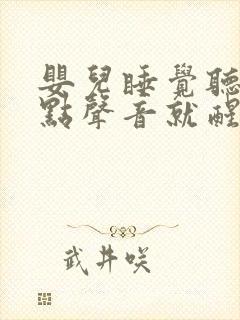 嬰兒睡覺聽
點聲音就醒
武井咲